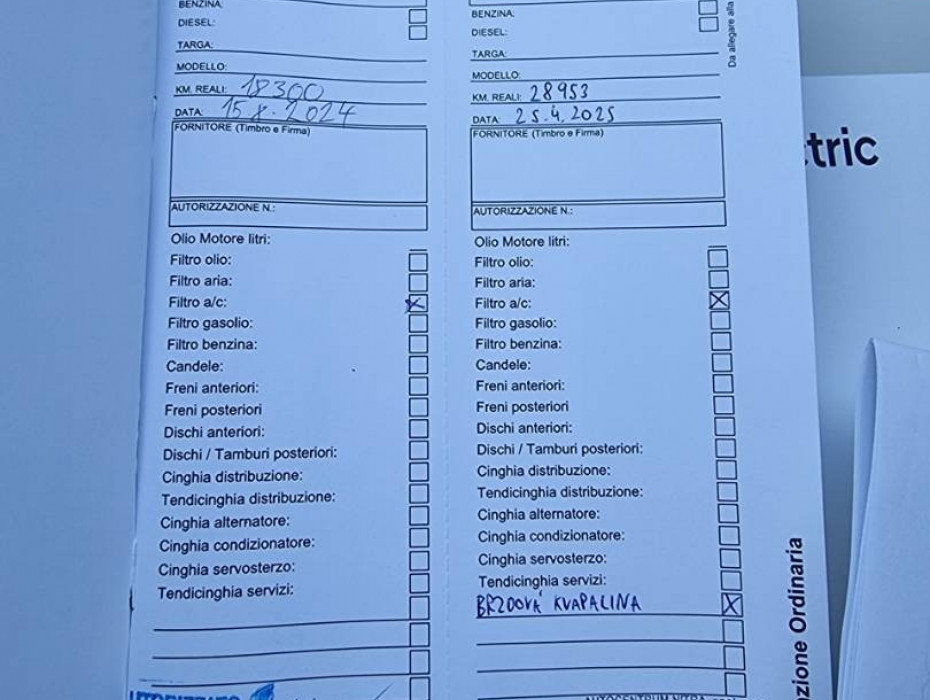 BENZINA:
DIESEL:
TARGA:
MODELLO:
KM. REALI: 18300
DATA: 15.8.2024
FORNITORE (Timbro e Firma)
AUTORIZZAZIONE N.:
Olio Motore litri:
Filtro olio:
Filtro aria:
Filtro a/c:
Filtro gasolio:
Filtro benzina:
Candele:
Freni anteriori:
Freni posteriori
Dischi anteriori:
Dischi / Tamburi posteriori:
Cinghia distribuzione:
Tendicinghia distribuzione:
Cinghia alternatore:
Cinghia condizionatore:
Cinghia servosterzo:
Tendicinghia servizi:
BENZINA:
DIESEL:
TARGA:
MODELLO:
KM. REALI: 28953
DATA: 25.4.2025
FORNITORE (Timbro e Firma)
AUTORIZZAZIONE N.:
Olio Motore litri:
Filtro olio:
Filtro aria:
Filtro a/c:
Filtro gasolio:
Filtro benzina:
Candele:
Freni anteriori:
Freni posteriori
Dischi anteriori:
Dischi / Tamburi posteriori:
Cinghia distribuzione:
Tendicinghia distribuzione:
Cinghia alternatore:
Cinghia condizionatore:
Cinghia servosterzo:
Tendicinghia servizi:
BRZDOVÁ KVAPALINA
Da allegare alla
zione Ordinaria
tric